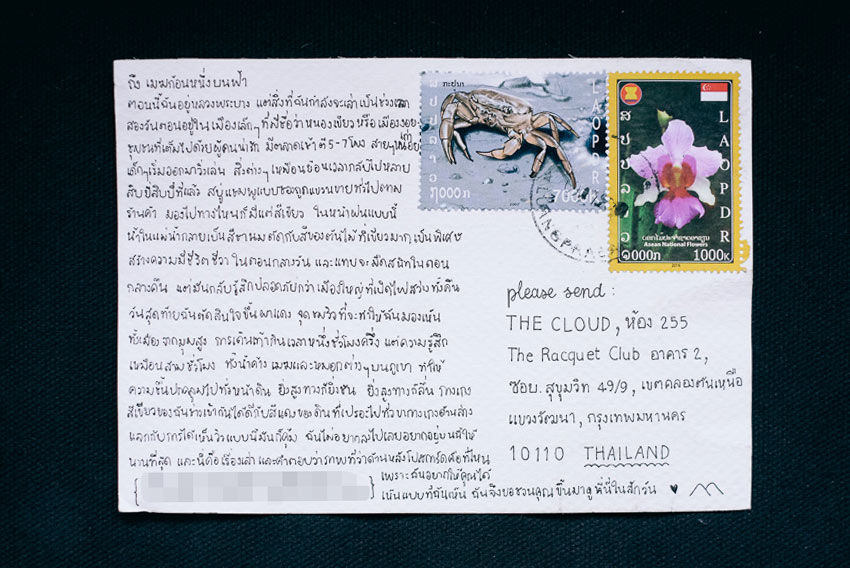 ถึง เมฆก้อนหนึ่งบนฟ้า
ตอนนี้ฉันอยู่หลวงพระบาง แต่สิ่งที่ฉันกำลังจะเล่าเป็นช่วงเวลา
สองวันตอนอยู่ในเมืองเล็กๆ ที่มีชื่อว่าหนองเขียวหรือเมืองงอย
ชุมชนที่เต็มไปด้วยผู้คนน่ารัก มีตลาดเช้า ตี 5-7 โมง สายๆหน่อย
เด็กๆเริ่มออกมาวิ่งเล่น สิ่งต่างๆเหมือนย้อนเวลากลับไปหลาย
สิบยี่สิบปีที่แล้ว สบู่แชมพูแบบซองถูกแขวนขายทั่วไปตาม
ร้านค้า มองไปทางไหนก็มีแต่สีเขียว ในหน้าฝนแบบนี้
น้ำในแม่น้ำกลายเป็นสีชานมตัดกับสีของต้นไม้ที่เขียวมากเป็นพิเศษ
สร้างความมีชีวิตชีวา ในตอนกลางวัน และแทบจะมืดสนิทในตอน
กลางคืน แต่มันกลับรู้สึกปลอดภัยกว่าเมืองใหญ่ที่เปิดไฟสว่างทั้งคืน
วันสุดท้ายฉันตัดสินใจขึ้นผาแดง จุดชมวิวที่จะทำให้ฉันมองเห็น
ทั้งเมืองจากมุมสูง การเดินเท้ากินเวลาหนึ่งชั่วโมงครึ่ง แต่ความรู้สึก
เหมือนสามชั่วโมง ทั้งน้ำค้าง เมฆและหมอกต่างๆบนภูเขา ทำให้
ความชื้นปกคลุมไปทั่วหน้าดิน ยิ่งสูงทางก็ยิ่งชัน ยิ่งสูงทางก็ลื่น กางเกง
สีเขียวของฉันช่างเข้ากันได้ดีกับสีแดงของดินที่เปรอะไปทั่วขากางเกงด้านล่าง
แลกกับการได้เห็นวิวแบบนี้มันก็คุ้ม ฉันไม่อยากลงไปเลยอยากอยู่บนนี้ให้
นานที่สุด และนี่คือเรื่องเล่า และคำตอบว่าภาพที่ว่าด้านหลังโปสการ์ดคือที่ไหน
เพราะฉันอยากให้คุณได้
เห็นแบบที่ฉันเห็น ฉันจึงขอชวนคุณขึ้นมาดูที่นี่ในสักวัน
ກະປູນາ
ສປປລາວ
LAOPDR
7000ກ
700
ສປປລາວ
LAOPDR
ດອກໄມ້ປະຈຳຊາດອາຊຽນ
Asean National Flowers
1000ກ
1000K
LUANGPRABANG
please send :
THE CLOUD, ห้อง 255
The Racquet Club อาคาร 2,
ซอย. สุขุมวิท 49/9, เขตคลองตันเหนือ
แขวงวัฒนา, กรุงเทพมหานคร
10110 THAILAND